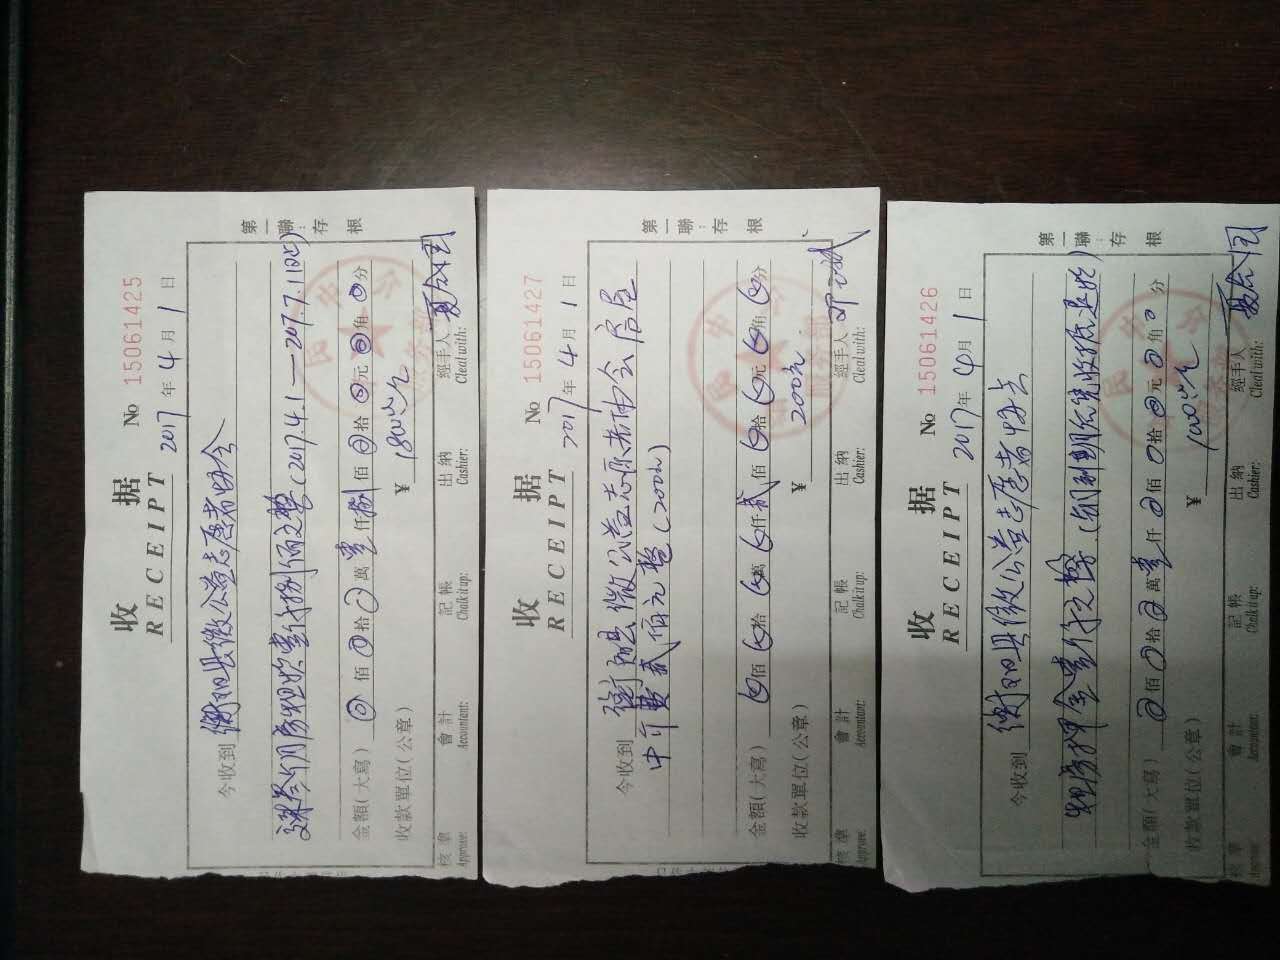 收 据
RECEIPT
No 15061425
2017年4月1日
今收到 衡阳县微公益志愿者协会
交来叁个月房租费壹仟捌佰元整(2017.4.1—2017.7.1日止)
金額(大寫) 佰 拾 萬 壹仟捌佰 拾 元 角 分
¥ 1800元
收款單位(公章)
核準 會計 記帳 出納 經手人
Approve: Accountant: Chalk it up: Cashier: Cleal with:
第一聯:存根
收 据
RECEIPT
No 15061427
2017年4月1日
今收到 衡阳县微公益志愿者协会房屋
中介费贰佰元整(200元)
金額(大寫) 佰 拾 萬 仟 贰佰 拾 元 角 分
¥ 200元
收款單位(公章)
核準 會計 記帳 出納 經手人
Approve: Accountant: Chalk it up: Cashier: Cleal with:
第一聯:存根
收 据
RECEIPT
No 15061426
2017年4月1日
今收到 衡阳县微公益志愿者协会
租房押金壹仟元整(到期凭此收据退还)
金額(大寫) 佰 拾 萬 壹仟 佰 拾 元 角 分
¥ 1000元
收款單位(公章)
核準 會計 記帳 出納 經手人
Approve: Accountant: Chalk it up: Cashier: Cleal with:
第一聯:存根